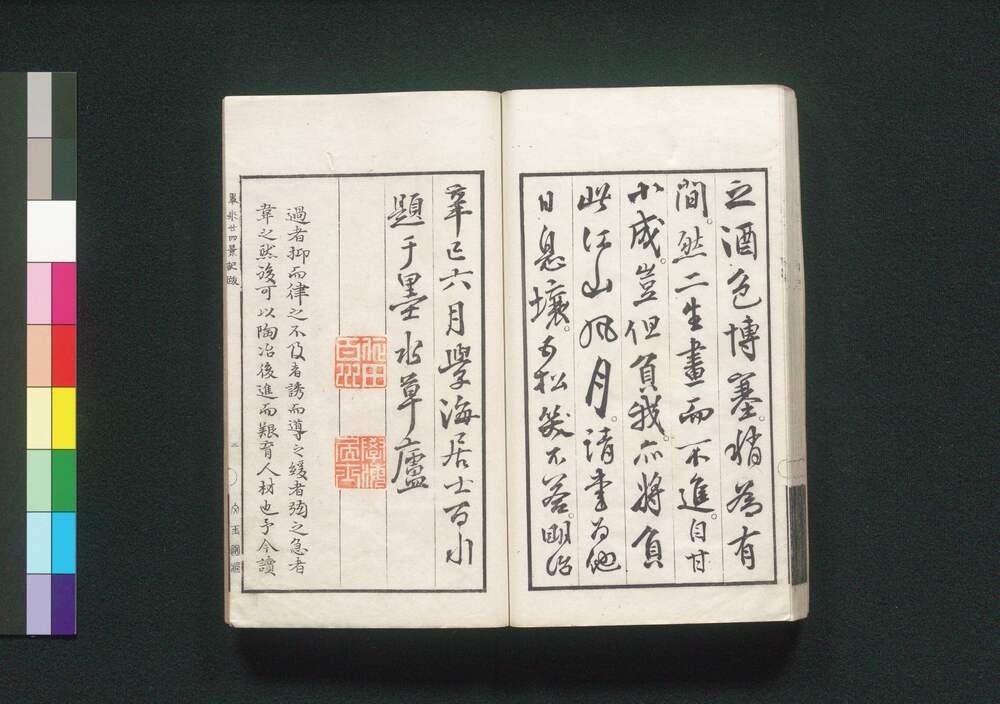 之酒色博塞。稍為有
間。然二生畫而不進。自甘
小成。豈但負我。亦将負
此江山風月。請書為他
日息壤。百松笑不答。明治
辛巳六月學海居士百川
題于墨水草廬
依田百川
學海居士
過者抑而律之不及者誘而導之緩者弦之急者
韋之然後可以陶冶後進而艱育人材也予今讀
墨水廿四景記跋